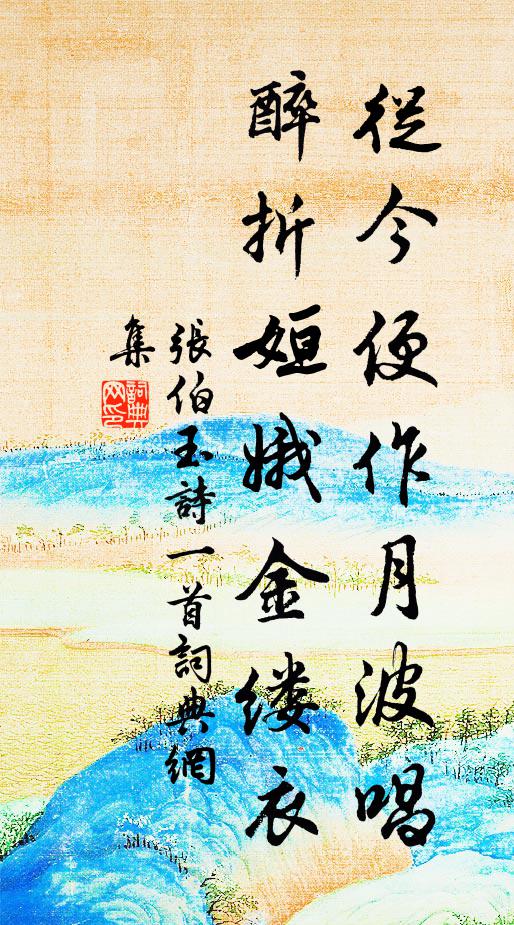 從今便作月波唱
醉折姮娥金缕衣
張伯玉詩一首詞典網
集
詞典网印